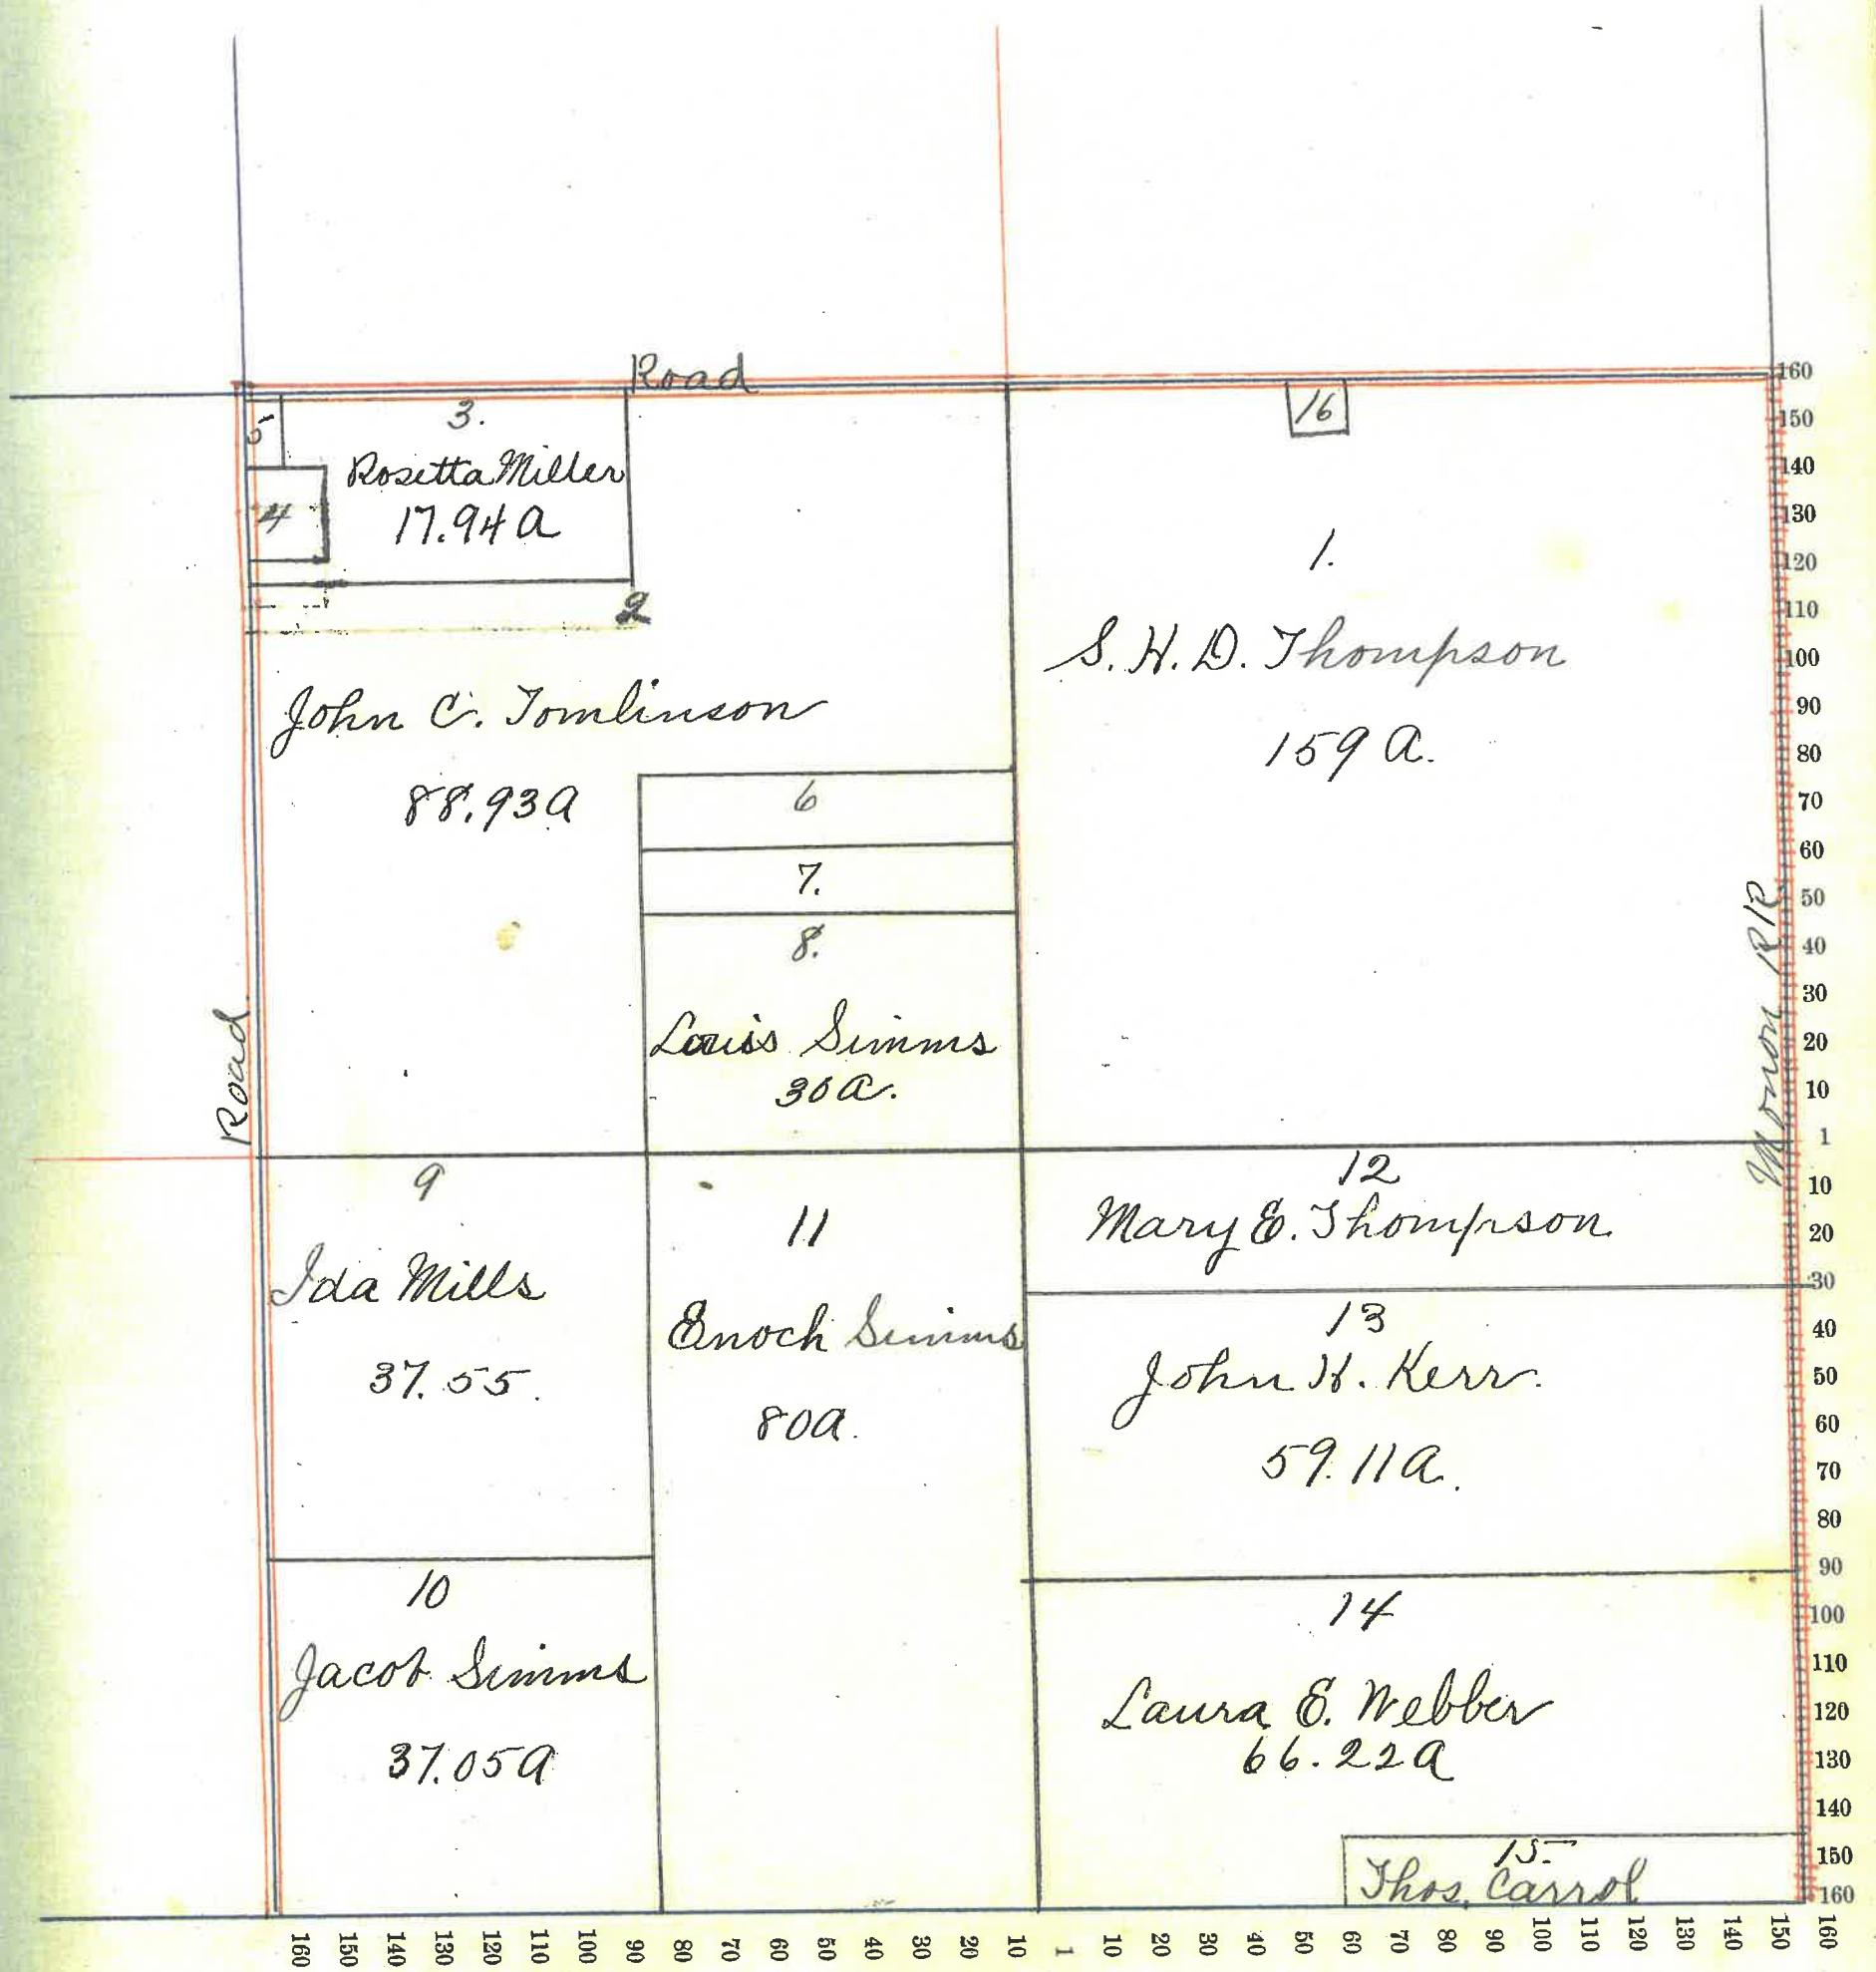 Road
5
3.
Rosetta Miller
17.94 a
4
2
John C. Tomlinson
88.93 a
16
1.
S. H. D. Thompson
159 a.
6
7.
8.
Louis Simms
30 a.
Road
Monon RR
9
Ida Mills
37.55.
10
Jacob Simms
37.05 a
11
Enoch Simms
80 a.
12
Mary E. Thompson
13
John H. Kerr.
59.11 a.
14
Laura E. Webber
66.22 a
15.
Thos. Carrol
160
150
140
130
120
110
100
90
80
70
60
50
40
30
20
10
1
10
20
30
40
50
60
70
80
90
100
110
120
130
140
150
160
160 150 140 130 120 110 100 90 80 70 60 50 40 30 20 10 1 10 20 30 40 50 60 70 80 90 100 110 120 130 140 150 160